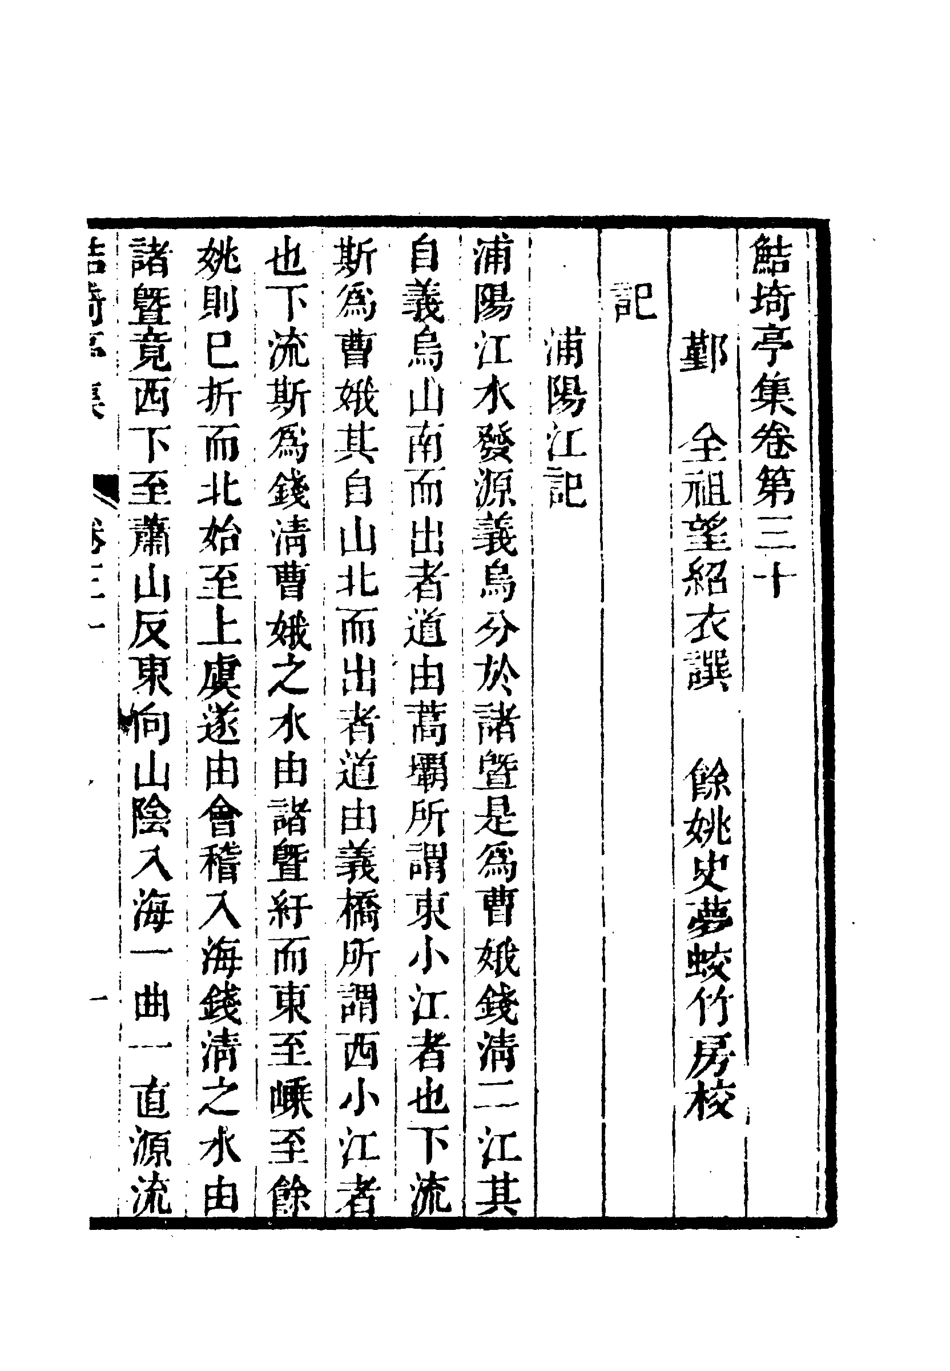 鮚埼亭集卷第三十
鄞　全祖望紹衣譔　餘姚史夢蛟竹房校
記
浦陽江記
浦陽江水發源義烏分於諸曁是爲曹娥錢清二江其
自義烏山南而出者道由蒿壩所謂東小江者也下流
斯爲曹娥其自山北而出者道由義橋所謂西小江者
也下流斯爲錢清曹娥之水由諸曁紆而東至嵊至餘
姚則已折而北始至上虞遂由會稽入海錢清之水由
諸曁竟西下至蕭山反東向山陰入海一曲一直源流
鮚埼亭集　卷三十　一